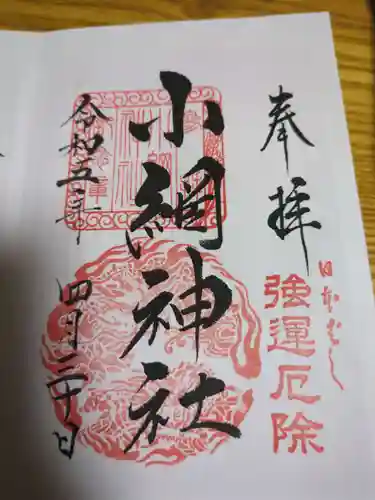 奉拝
日本ばし
強運厄除
小網神社
令和五年
四月三十日